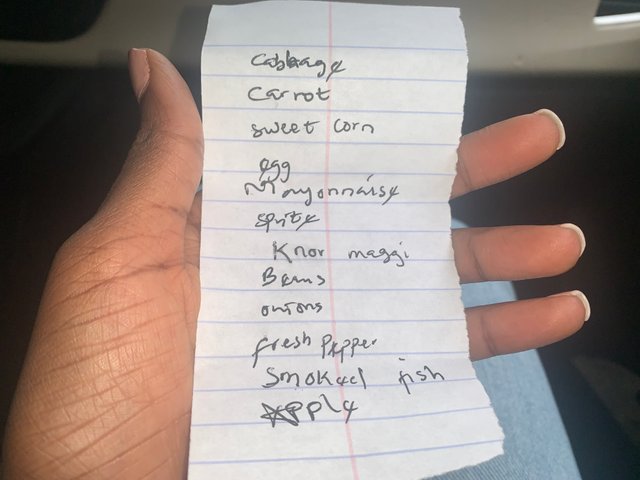 Cabbage
Carrot
sweet corn
egg
Mayonnaise
sprite
Knor maggi
Beans
onions
fresh pepper
Smoked fish
Apple